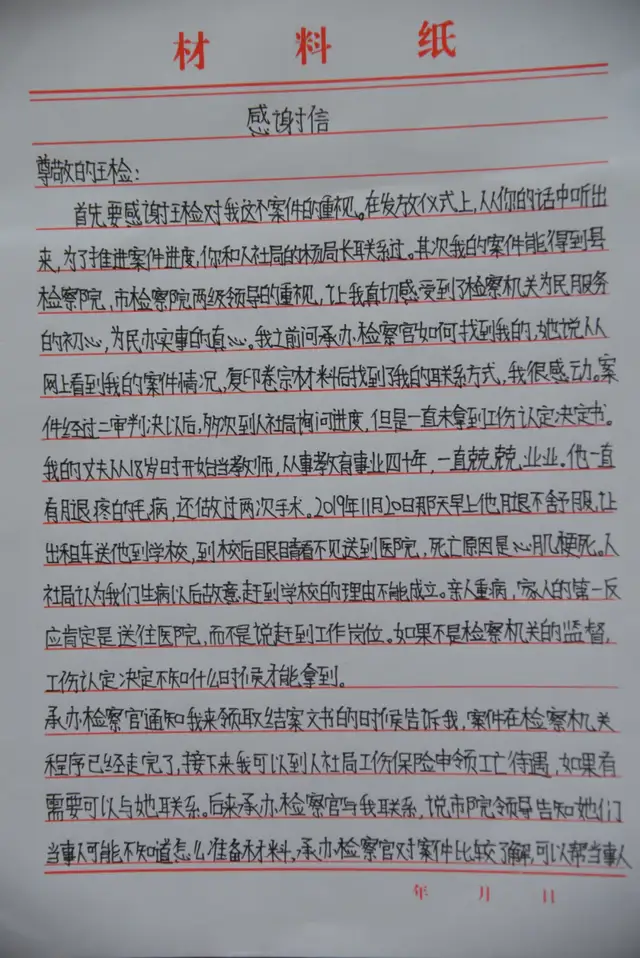 材料纸
感谢信
尊敬的王检：
首先要感谢王检对我这个案件的重视。在发放仪式上，从你的话中听出
来，为了推进案件进度，你和人社局的杨局长联系过。其次我的案件能得到县
检察院，市检察院两级领导的重视，让我真切感受到了检察机关为民服务
的初心，为民办实事的真心。我之前问承办检察官如何找到我的，她说从
网上看到我的案件情况，复印卷宗材料后找到了我的联系方式，我很感动。案
件经过二审判决以后，多次到人社局询问进度，但是一直未拿到工伤认定决定书。
我的丈夫从18岁时开始当教师，从事教育事业四十年，一直兢兢业业。他一直
有腿疼的毛病，还做过两次手术。2019年11月20日那天早上他腿不舒服，让
出租车送他到学校，到校后眼睛看不见送到医院，死亡原因是心肌梗死。人
社局认为我们生病以后故意赶到学校的理由不能成立。亲人重病，家人的第一反
应肯定是送往医院，而不是说赶到工作岗位。如果不是检察机关的监督，
工伤认定决定不知什么时候才能拿到。
承办检察官通知我来领取结案文书的时候告诉我，案件在检察机关
程序已经走完了，接下来我可以到人社局工伤保险申领工亡待遇，如果有
需要可以与她联系。后来承办检察官与我联系，说市院领导告知她们
当事人可能不知道怎么准备材料，承办检察官对案件比较了解，可以帮当事人
年 月 日